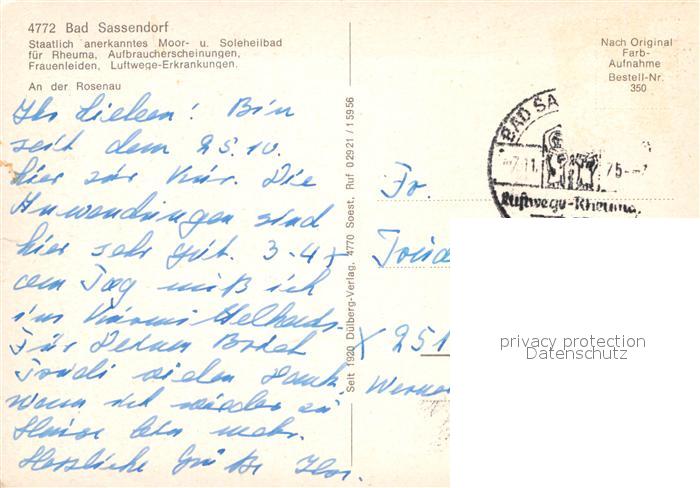 4772 Bad Sassendorf
Staatlich anerkanntes Moor- u. Soleheilbad
für Rheuma, Aufbraucherscheinungen,
Frauenleiden, Luftwege-Erkrankungen.
An der Rosenau
Ihr Lieben! Bin
seit dem 25.10.
hier zur Kur. Die
Anwendungen sind
hier sehr gut. 3-4x
am Tag muß ich
ins
Für Deinen Brief
Trudi vielen Dank
wenn ich wieder zu
Hause bin mehr.
Herzliche Grüße
Seit 1920 Dülberg-Verlag, 4770 Soest, Ruf 02921/15956
Nach Original
Farb-
Aufnahme
Bestell-Nr.
350
BAD SA
7.11. 75
Luftwege-Rheuma.
Fr.
X 251
Werner
privacy protection
Datenschutz